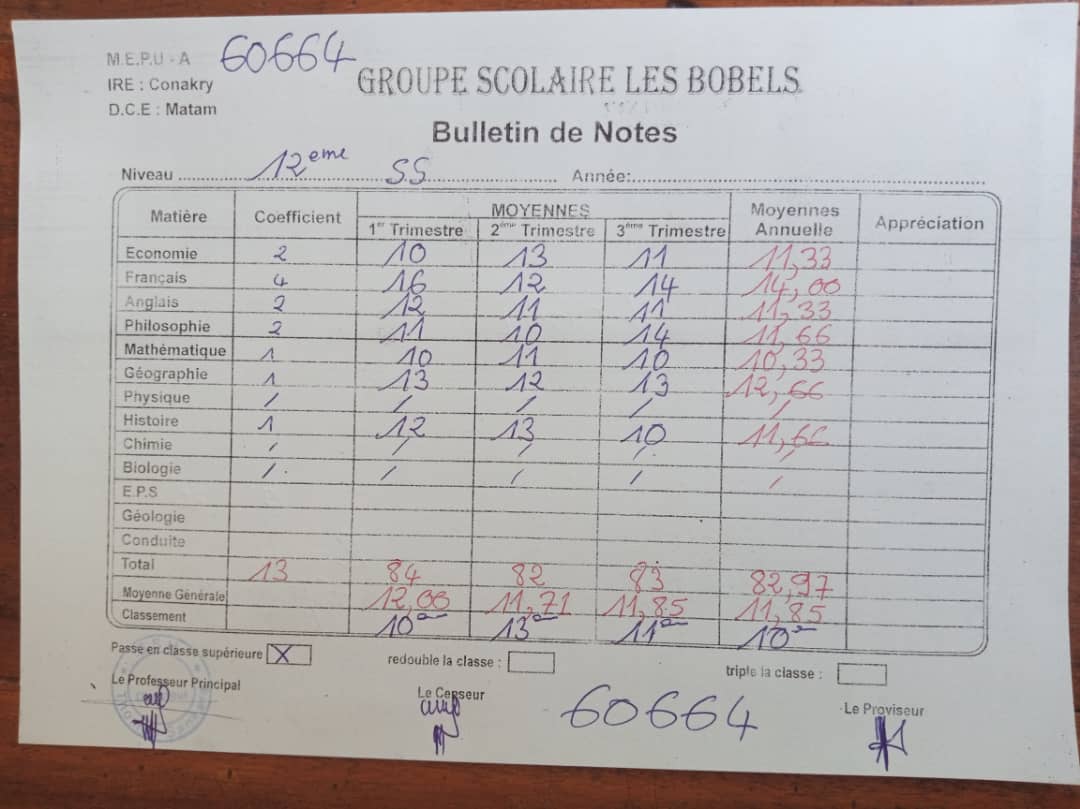 M.E.P.U - A 60664
IRE : Conakry
GROUPE SCOLAIRE LES BOBELS
D.C.E : Matam
Bulletin de Notes
Niveau 12eme SS Année:
Matière Coefficient MOYENNES Moyennes Annuelle Appréciation
1er Trimestre 2ème Trimestre 3ème Trimestre
Economie 2 10 13 11 11,33
Français 4 16 12 14 14,00
Anglais 2 12 11 11 11,33
Philosophie 2 11 10 14 11,66
Mathématique 1 10 11 10 10,33
Géographie 1 13 12 13 12,66
Physique / / / / /
Histoire 1 12 13 10 11,66
Chimie / / / / /
Biologie / / / / /
E.P.S
Géologie
Conduite
Total 13 84 82 83 82,97
Moyenne Générale 12,00 11,71 11,85 11,85
Classement 10e 13e 11e 10e
Passe en classe supérieure X redouble la classe : triple la classe :
Le Professeur Principal Le Censeur Le Proviseur
60664